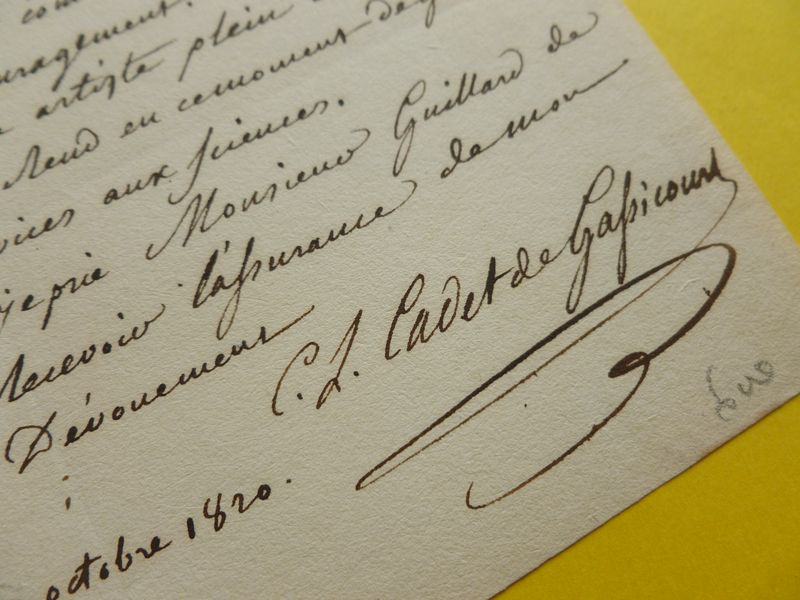 com
uragement.
artiste plein
rend en ce moment de
vices aux sciences.
je prie Monsieur Guillard de
recevoir l'assurance de mon
Dévouement
C. L. Cadet de Gassicourt
octobre 1820.